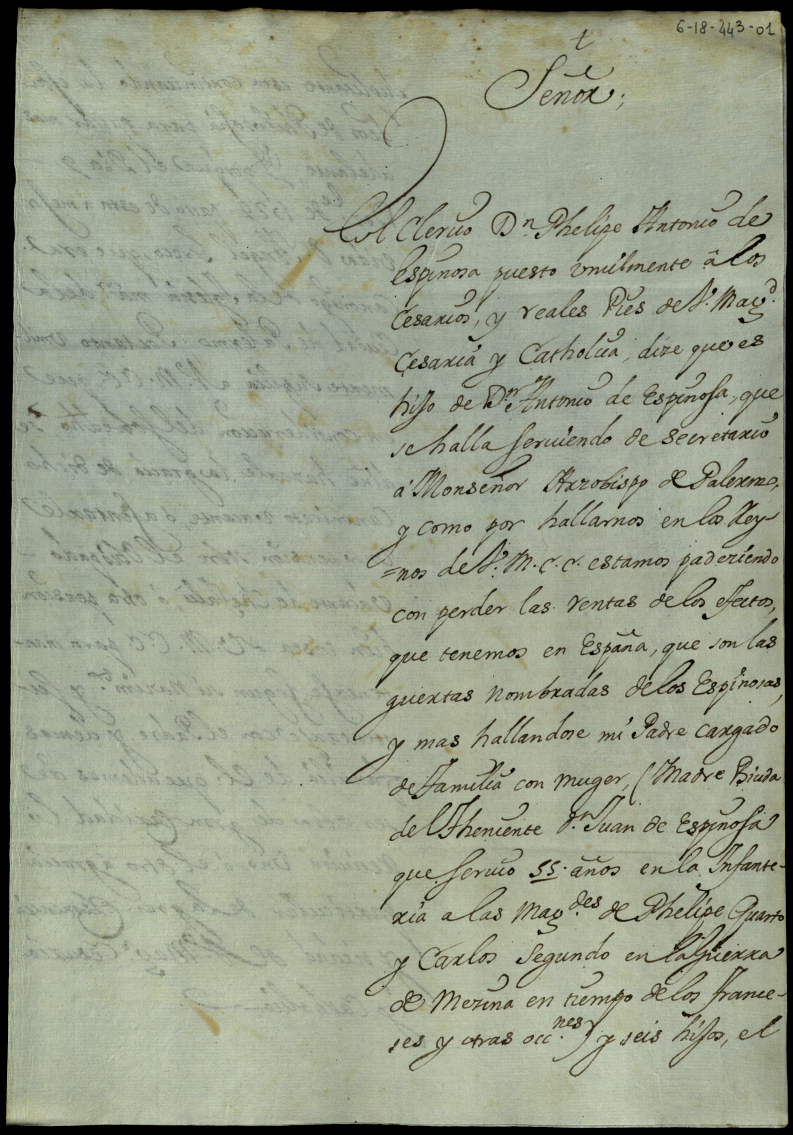 6-18-443-01
†
Señor;
El Clerico Dn Phelipe Antonio de
Espinosa puesto vmilmente â los
Cesarios, y reales Pies de V. Magd.
Cesaria y Catholica, dize que es
hijo de Dn Antonio de Espinosa, que
se halla serviendo de secretario
a' Monseñor Arzobispo de Palermo,
y como por hallarnos en los Rey-
=nos de V. M. C. C. estamos padeziendo
con perder las rentas de los efectos,
que tenemos en España, que son las
guertas nombradas de los Espinosas,
y mas hallandose mi Padre cargado
de familia con muger, (Madre Biuda
del Theniente Dn Juan de Espinosa
que servio 55. años en la Infante-
ria a las Magdes de Phelipe Quarto
y Carlos Segundo en la Guerra
de Mezina en tiempo de los france-
ses y otras occnes) y seis hijos, el